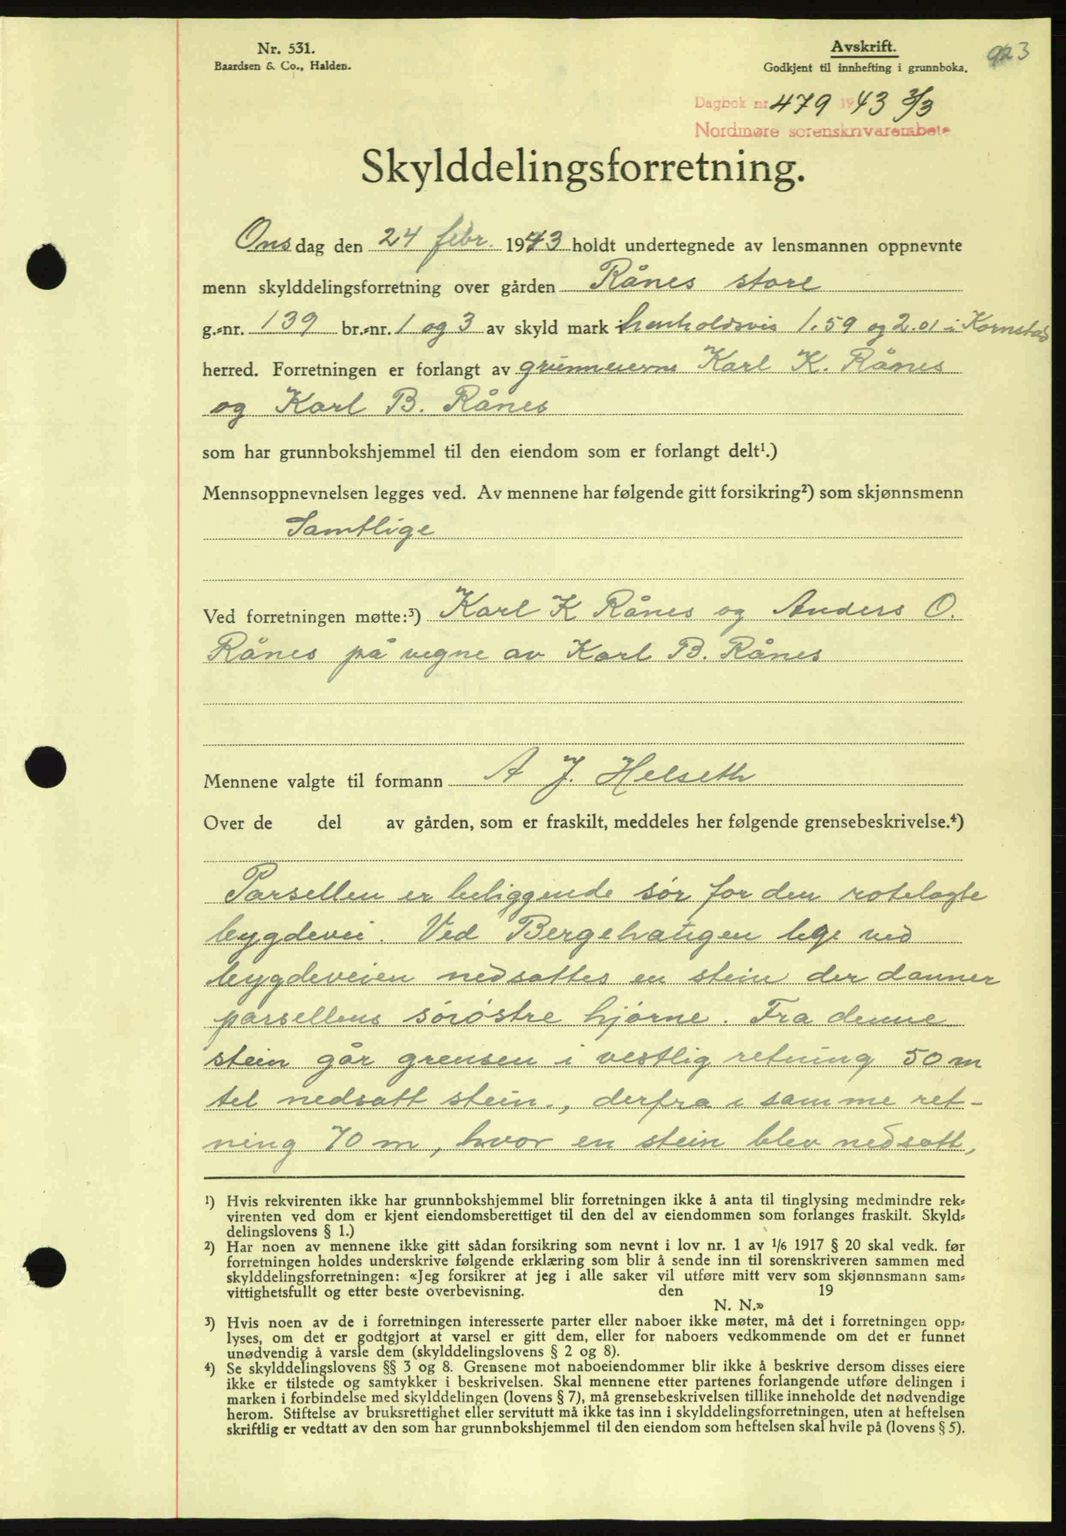 Nr. 531.
Baardsen & Co., Halden.
Avskrift.
Godkjent til innhefting i grunnboka.
923
Dagbok nr. 479 1943 3/3
Nordmøre sorenskriverembete
Skylddelingsforretning.
Onsdag den 24 febr. 1943 holdt undertegnede av lensmannen oppnevnte
menn skylddelingsforretning over gården Rånes store
g.-nr. 139 br.-nr. 1 og 3 av skyld mark henholdsvis 1.59 og 2.01 i Kornstad
herred. Forretningen er forlangt av grunneierne Karl K. Rånes
og Karl B. Rånes
som har grunnbokshjemmel til den eiendom som er forlangt delt¹.)
Mennsoppnevnelsen legges ved. Av mennene har følgende gitt forsikring²) som skjønnsmenn
Samtlige
Ved forretningen møtte:³) Karl K Rånes og Anders O.
Rånes på vegne av Karl B. Rånes
Mennene valgte til formann A J. Helseth
Over de del av gården, som er fraskilt, meddeles her følgende grensebeskrivelse.⁴)
Parsellen er beliggende sør for den rotelagte
bygdevei. Ved Bergehaugen lige ved
bygdeveien nedsattes en stein der danner
parsellens sørøstre hjørne. Fra denne
stein går grensen i vestlig retning 50 m
til nedsatt stein., derfra i samme ret-
ning 70 m, hvor en stein blev nedsatt,
¹) Hvis rekvirenten ikke har grunnbokshjemmel blir forretningen ikke å anta til tinglysing medmindre rek-
virenten ved dom er kjent eiendomsberettiget til den del av eiendommen som forlanges fraskilt. Skyld-
delingslovens § 1.)
²) Har noen av mennene ikke gitt sådan forsikring som nevnt i lov nr. 1 av 1/6 1917 § 20 skal vedk. før
forretningen holdes underskrive følgende erklæring som blir å sende inn til sorenskriveren sammen med
skylddelingsforretningen: «Jeg forsikrer at jeg i alle saker vil utføre mitt verv som skjønnsmann sam-
vittighetsfullt og etter beste overbevisning. den 19
N. N.»
³) Hvis noen av de i forretningen interesserte parter eller naboer ikke møter, må det i forretningen opp-
lyses, om det er godtgjort at varsel er gitt dem, eller for naboers vedkommende om det er funnet
unødvendig å varsle dem (skylddelingslovens § 2 og 8).
⁴) Se skylddelingslovens §§ 3 og 8. Grensene mot naboeiendommer blir ikke å beskrive dersom disses eiere
ikke er tilstede og samtykker i beskrivelsen. Skal mennene etter partenes forlangende utføre delingen i
marken i forbindelse med skylddelingen (lovens § 7), må grensebeskrivelsen tillike inneholde det nødvendige
herom. Stiftelse av bruksrettighet eller servitutt må ikke tas inn i skylddelingsforretningen, uten at heftelsen
skriftlig er vedtatt av den som har grunnbokshjemmel til den eiendom som heftelsen skal hvile på (lovens § 5).